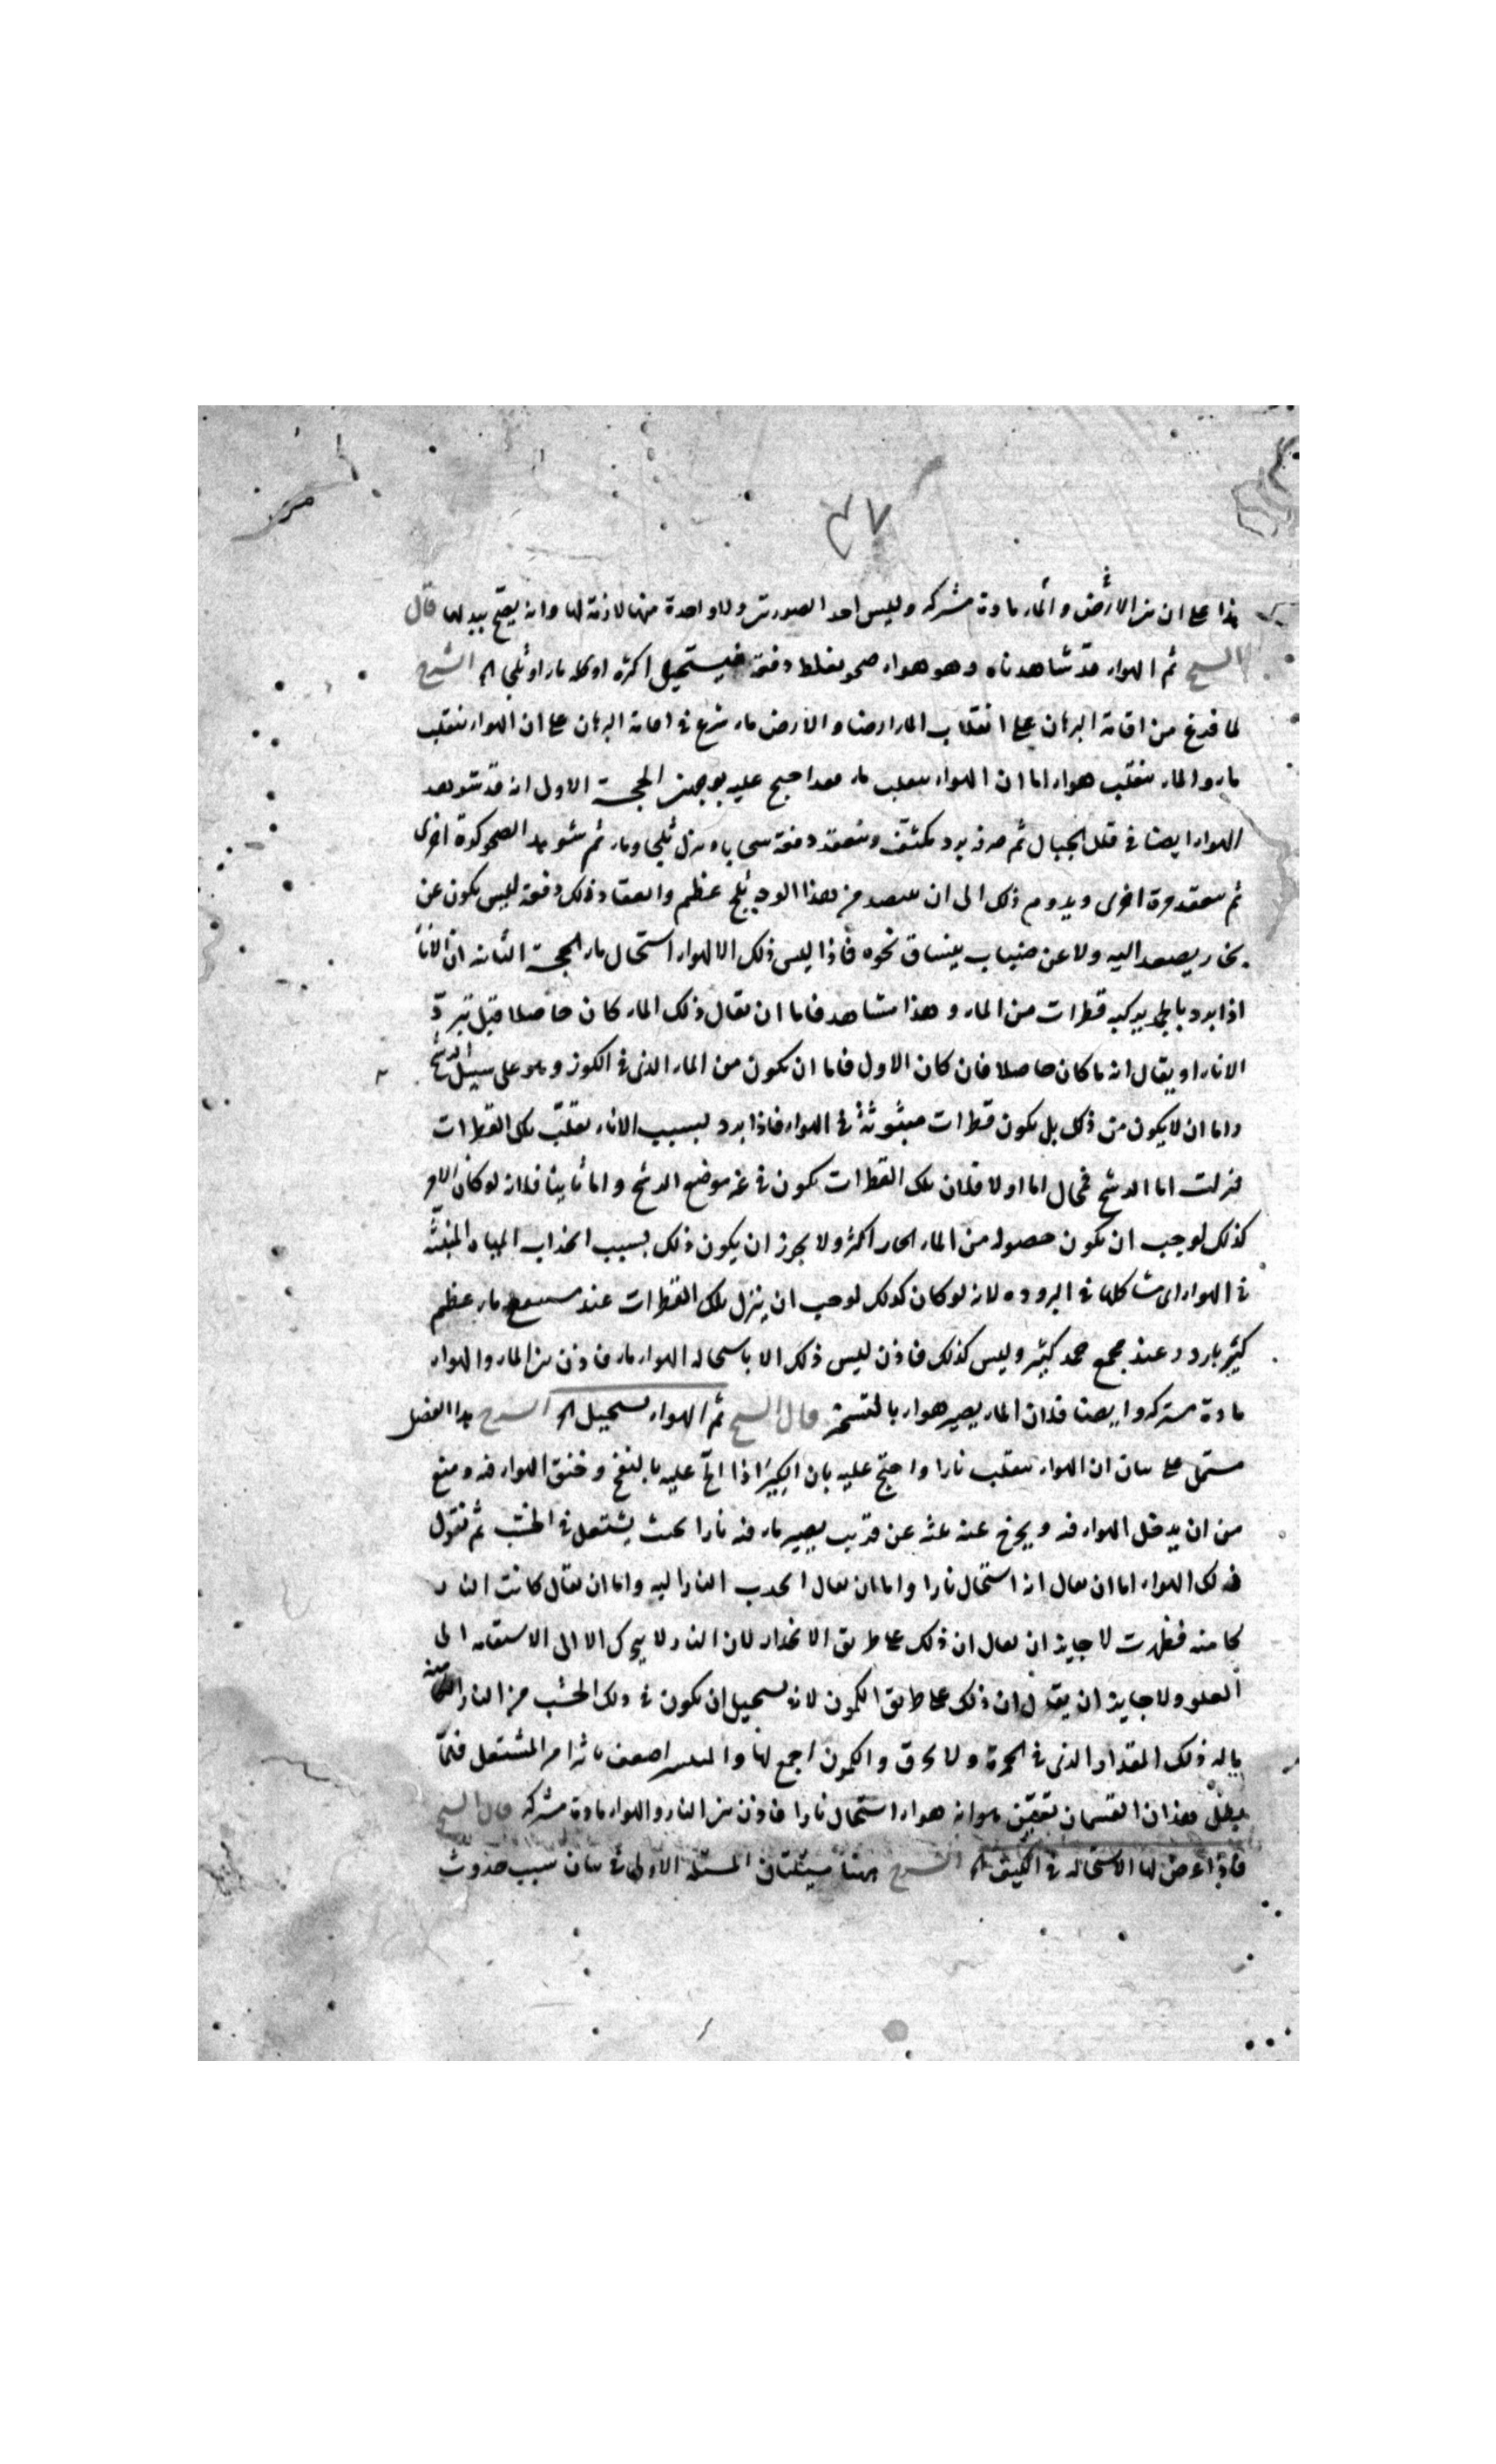 ٣٧
هذا على ان بين الارض والماء مادة مشتركه وليس احد الصورتين ولا واحدة منهما لازمة لها وانه يصح تبدلها قال
الشيخ ثم الهواء قد شاهدناه وهو هواء صحو يغلظ دفعة فيستحيل اكثره او كله ماء او ثلجا الخ الشرح
لما فرغ من اقامة البرهان على انقلاب الماء ارضا والارض ماء شرع في اقامة البرهان على ان الهواء ينقلب
ماء والماء ينقلب هواء اما ان الهواء ينقلب ماء فقد احتج عليه بوجهين الحجة الاول انه قد شوهد
الهواء ايضا في قلل الجبال ثم صرفه برد يكثف وينعقد دفعة سحابا ونزل ثلجا وماء ثم شوهد الصحو كرة اخرى
ثم ينعقد مرة اخرى ويدوم ذلك الى ان يتنضد من هذا الوجه ثلج عظيم وانعقاد ذلك دفعة ليس يكون عن
بخار يصعد اليه ولا عن ضباب ينساق نحوه فاذا ليس ذلك الا الهواء استحال ماء الحجة الثانية ان الاناء
اذا برد بالجمد يركبه قطرات من الماء وهذا مشاهد فاما ان يقال ذلك الماء كان حاصلا قبل تبرد
الاناء او يقال انه ما كان حاصلا فان كان الاول فاما ان يكون من الماء الذي في الكوز وهو على سبيل الرشح
واما ان لا يكون من ذلك بل يكون قطرات مبثوثة في الهواء فاذا برد بسبب الاناء ثقلت تلك القطرات
فنزلت اما الرشح فمحال اما اولا فلان تلك القطرات يكون في غير موضع الرشح واما ثانيا فلانه لو كان الامر
كذلك لوجب ان يكون حصوله من الماء الحار اكثر ولا يجوز ان يكون ذلك بسبب انجذاب المياه المنبثة
في الهواء الى مشاكلها في البرودة لانه لو كان كذلك لوجب ان ينزل تلك القطرات عند مستنقع ماء عظيم
كثير بارد وعند مجمع جمد كثير وليس كذلك فاذن ليس ذلك الا باستحالة الهواء ماء فاذن بين الماء والهواء
مادة مشتركه وايضا فلان الماء يصير هواء بالتسخين قال الشيخ ثم الهواء يستحيل الخ الشرح هذا الفصل
مشتمل على بيان ان الهواء ينقلب نارا واحتج عليه بان الكير اذا الح عليه بالنفخ وخنق الهواء فيه ومنع
من ان يدخل الهواء فيه ويخرج عنه فانه عن قريب يصير ما فيه نارا بحيث يشتعل في الخشب ثم نقول
ذلك الهواء اما ان يقال انه استحال نارا واما ان يقال انجذب النار اليه واما ان يقال كانت النار
كامنة فظهرت لا جايز ان يقال ان ذلك على طريق الانحدار لان النار لا يتحرك الا الى الاستقامة الى
العلو ولا جايز ان يقال ان ذلك على طريق الكمون لانه يستحيل ان يكون في ذلك الخشب من النار الكامنة
ماله ذلك المقدار الذي في الجمرة ولا يحرق والكمون اجمع لها والمنتشر اضعف تاثيرا من المشتعل فلما
بطل هذان القسمان تعين هو انه هواء استحال نارا فاذن بين النار والهواء مادة مشتركه قال الشيخ
فاذا عرض لها الاستحالة في الكيف الخ الشرح ههنا مسئلتان المسئلة الاولى في بيان سبب حدوث